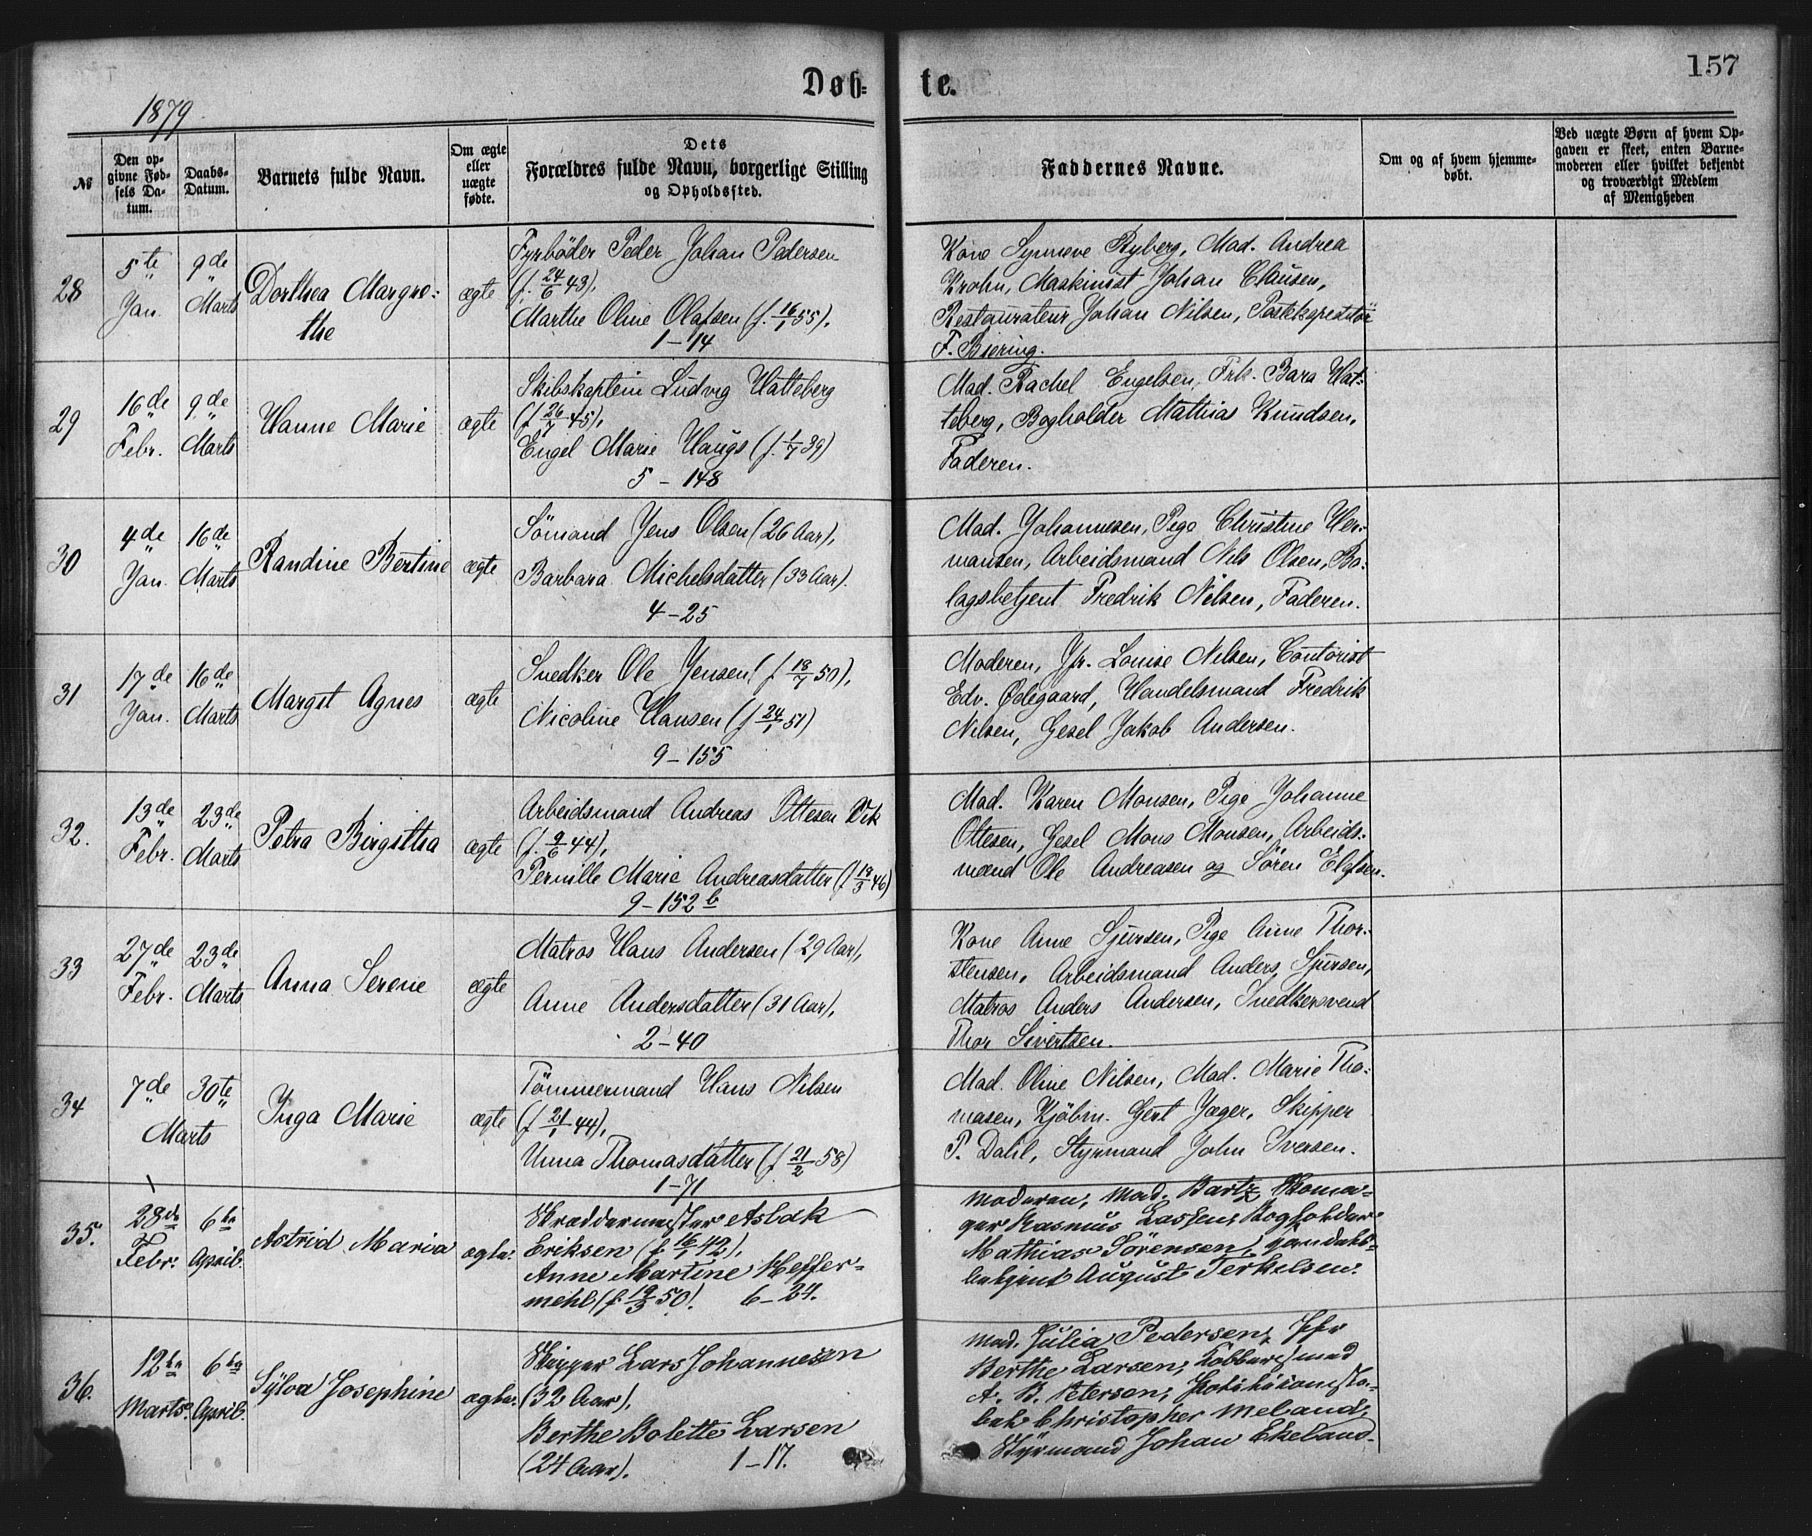 Døb=
te.
157
1879
№
Den op-
givne Fød-
sels Da-
tum.
Daabs-
Datum.
Barnets fulde Navn.
Om ægte
eller
uægte
fødte.
Dets
Forældres fulde Navn, borgerlige Stilling
og Opholdssted.
Faddernes Navne.
Om og af hvem hjemme-
døbt.
Ved uægte Børn af hvem Op-
gaven er skeet, enten Barne-
moderen eller hvilket bekjendt
og troværdigt Medlem
af Menigheden
28
5te Jan.
9de Marts
Dorthea Margre=
the
ægte
Fyrbøder Peder Johan Pedersen
(f. 24/6 43),
Marthe Oline Olafsen (f. 16/1 55).
1-14
Kone Synneve Ryberg, Mad. Andrea
Krohn, Maskinist Johan Clausen,
Restaurateur Johan Nilsen, Postexpeditör
F. Biering.
29
16de Febr.
9de Marts
Hanne Marie
ægte
Skibskaptein Ludvig Hatteberg
(f. 26/7 45),
Engel Marie Haugs (f. 1/7 39)
5-148
Mad. Rachel Engelsen, Frk. Bara Hat-
teberg, Bogholder Mathias Knudsen,
Faderen.
30
4de Jan.
16de Marts
Randine Bertine
ægte
Sömand Jens Olsen (26 Aar),
Barbara Michelsdatter (33 Aar).
4-25
Mad. Johannesen, Pige Christine Her-
mansen, Arbeidsmand Nils Olsen, Bo-
lagsbetjent Fredrik Nilsen, Faderen.
31
17de Jan.
16de Marts
Margit Agnes
ægte
Snedker Ole Jensen (f. 18/7 50),
Nicoline Hansen (f. 24/1 51)
9-155
Moderen, Jfr. Louise Nilsen, Contorist
Edv. Ødegaard, Handelsmand Fredrik
Nilsen, Gesel Jakob Andersen.
32.
13de Febr.
23de Marts
Petra Birgitha
ægte
Arbeidsmand Andreas Ottesen Vik
(f. 9/6 44),
Pernille Marie Andreasdatter (f. 18/3 46)
9-152b
Mad. Karen Monsen, Pige Johanne
Ottesen, Gesel Mons Monsen, Arbeids-
mænd Ole Andreasen og Sören Elefsen.
33
27de Febr.
23de Marts
Anna Serene
ægte
Matros Hans Andersen (29 Aar),
Anne Andersdatter (31 Aar),
2-40
Kone Anne Sjursen, Pige Anne Thor-
stensen, Arbeidsmand Anders Sjursen,
Matros Anders Andersen, Snedkersvend
Thor Sivertsen.
34
7de
30te
Marts
Inga Marie
ægte
Tömmermand Hans Nilsen
(f. 21/1 44),
Unna Thomasdatter (f. 21/2 58)
1-71
Mad. Oline Nilsen, Mad. Marie Tho-
masen, Kjöbm. Gert Jæger, Skipper
P. Dahl, Styrmand John Iversen.
35.
28de Febr.
6te April.
Astrid Maria
ægte.
Skræddermester Aslak
Eriksen (f. 16/7 42),
Anne Martine Heffer-
mehl (f. 19/3 50). 6-24.
Moderen, Mad. Bartz, Skoma-
ger Rasmus Lassen, Bogholder
Mathias Sörensen, Handels-
betjent August Terkelsen.
36.
12te Marts.
6te April.
Sylva Josephine
ægte.
Skipper Lars Johannesen
(32 Aar),
Berthe Bolette Larsen
(24 Aar). 1-17.
Mad. Julia Pedersen, Jfr
Berthe Larsen, Kobbersmed
A. B. Petersen,
Christopher Meland,
Styrmand Johan Ekeland.